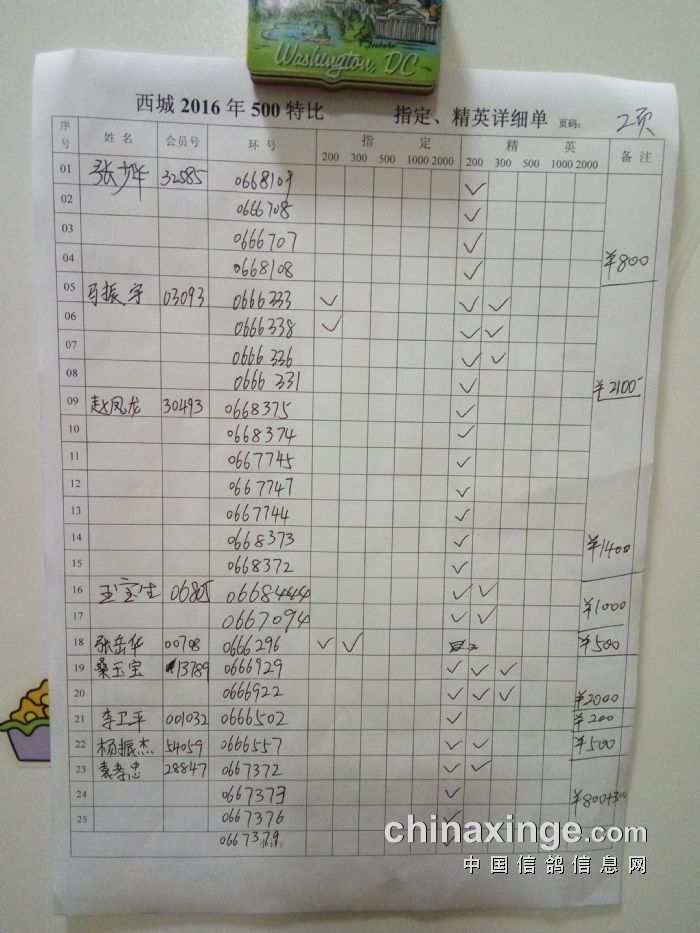 Washington, DC
西城 2016 年 500 特比 指定、精英详细单 页码: 2页
序号 姓名 会员号 环号 指定 精英 备注
200 300 500 1000 2000 200 300 500 1000 2000
01 张少华 32585 0668109 ✓
02 0666708 ✓
03 0666707 ✓
04 0668108 ✓ ¥800
05 马振宇 03093 0666333 ✓ ✓ ✓
06 0666338 ✓ ✓ ✓
07 0666336 ✓ ✓
08 0666331 ✓ ¥2100
09 赵凤龙 30493 0668375 ✓
10 0668374 ✓
11 0667745 ✓
12 0667747 ✓
13 0667744 ✓
14 0668373 ✓
15 0668372 ✓ ¥1400
16 王宝生 06805 0668444 ✓ ✓
17 0667094 ✓ ✓ ¥1000
18 张岳华 00708 0666296 ✓ ✓ ¥500
19 桑玉宝 13789 0666929 ✓ ✓ ✓
20 0666922 ✓ ✓ ✓ ¥2000
21 李卫平 001032 0666502 ✓ ¥200
22 杨振杰 54059 0666557 ✓ ✓ ¥500
23 袁孝忠 28847 0667372 ✓ ✓
24 0667379 ✓ ¥800+300
25 0667376 ✓
0667379 ✓
chinaxinge.com
中国信鸽信息网